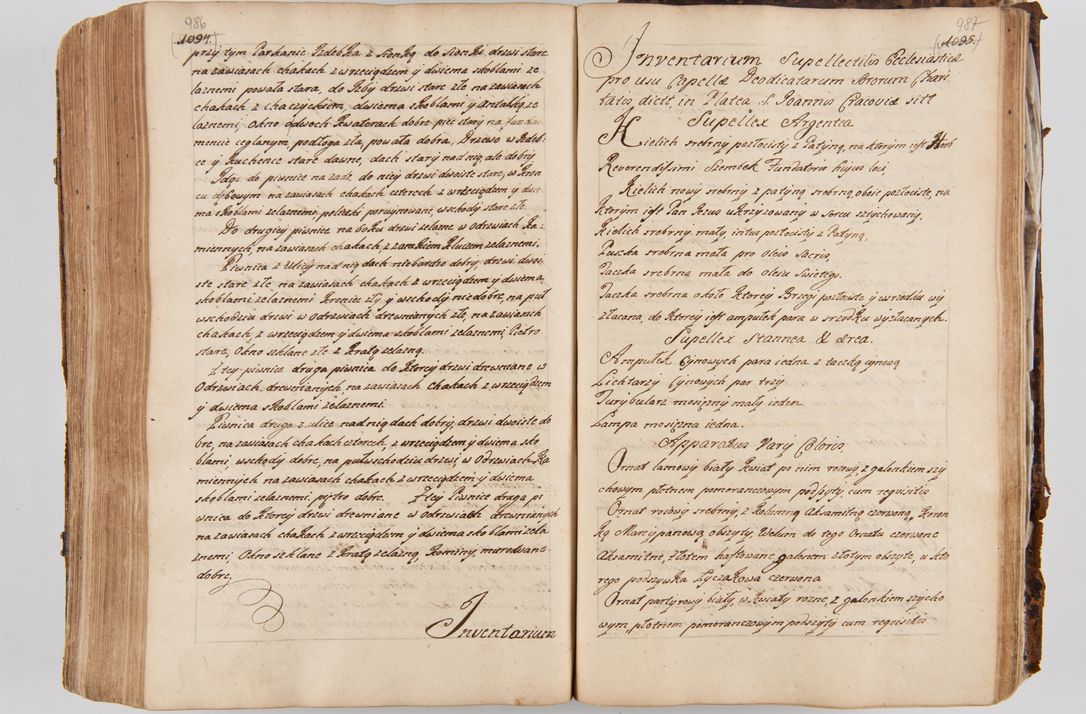 986
(1094.)
przy tym Parkanie Izdebka z Sionką do Sionki drzwi stare
na zawiasach chakach z wrzeciądzem y dwiema skoblami ze-
laznemi powała stara, do Izby drzwi stare złe na zawiasach
chakach z chaczykiem, dwiema skoblami y Antabką ze
laznemi, Okno o dwoch Kwaterach dobre piec stary na funda-
mencie ceglanym, podłoga zła, powała dobra, Drzewo w Izdeb-
ce y Kuchence stare dawne, dach stary nad nią ale dobry
Idąc do piwnic na zadz do niey drzwi dwoiste stare, w Kron
cu dębowym na zawiasach chakach czterech z wrzeciądzem y dwie-
ma skoblami zelaznemi, poliezki poruynowane, wschody stare złe.
Do drugiey piwnice na boku drzwi zelazne w odrzwiach Ka-
miennych, na zawiasach chakach, z zamkiem Kluczem zelaznemi.
Piwnica z Ulicy nad nią dach niebardzo dobry, drzwi dwoi-
ste stare złe na zawiasach chakach z wrzeciądzem y dwiema
skoblami zelaznemi Krenice zły, y wschody niedobre, na puł
wschodziu drzwi w Odrzwiach drewnianych złe, na zawiasach
chakach, z wrzeciądzem y dwiema skoblami zelaznemi, Pietro
stare, Okno szklane złe z Kratą zelazną.
Z tey piwnice druga piwnica do Ktorey drzwi drewniane w
Odrzwiach drewnianych, na zawiasach chakach z wrzeciądzem
y dwiema skoblami zelaznemi.
Piwnica druga z ulice nad nią dach dobry, drzwi dwoiste do
bre, na zawiasach chakach czterech, z wrzeciądzem y dwiema sko
blami, wschody dobre, na puł wschodziu drzwi, w Odrzwiach Ka
miennych na zawiasach chakach z wrzeciądzem y dwiema
skoblami zelaznemi, piętro dobre. Z tey Piwnice druga pi
wnica do Ktorey drzwi drewniane w odrzwiach drewnianych
na zawiasach chakach z wrzeciądzem y dwiema skoblami zela
znemi, Okno szklane z Kratą zelazną, Kominy murowane
dobre,
Inventarium
987
(1095.)
Inventarium Supellectilis Ecclesiasticæ
pro usu Capellæ Deodicatarum Sororum Chari
tatis dictæ, in Platea S. Joannis Cracoviæ sitæ
Supellex Argentea
Kielich srebrny pozłocisty z Patyną, na ktorym iest Herb
Reverendissimi Szembek Fundatora hujus loci,
Kielich nowy srebrny z patyną srebrną oboie pozłociste, na
Ktorym iest Pan Jezus Ukrzyżowany w sercu sztychowany,
Kielich srebrny mały, intus pozłocisty z Patyną,
Puszka srebrna mała pro Oleis Sacris,
Taczka srebrna mała do Oleiu Swietego.
Taczka srebrna około Ktorey Brzegi pozłociste y w rzodku wy
złacana, do Ktorey iest ampułek para w srzodku wyzłacanych.
Supellex Stannea & ærea.
Ampułek Cynowych para iedna z taczką cynową
Lichtarzy Cynowych par trzy
Turybularz mosięzny mały ieden
Lampa mosięzna iedna.
Apparatus Vary Coloris.
Ornat lamowy biały Kwiat po nim rozowy z galonkiem szy
chowym płotnem pomoranczowym podszyty, cum requisitis
Ornat rosowy srebrny, z Kolumną Aksamitną czerwoną, Koron
ką Marcypanową obszyty, Welum do tego Ornatu czerwone
Aksamitne, złotem haftowane galonem złotym obszyte, u Kto
rego podszywka Łyczakowa czerwona
Ornat partyrowy biały, w Kwiaty rozne, z galonkiem szycho
wym, płotnem pomoranczowym podszyty cum requisitis